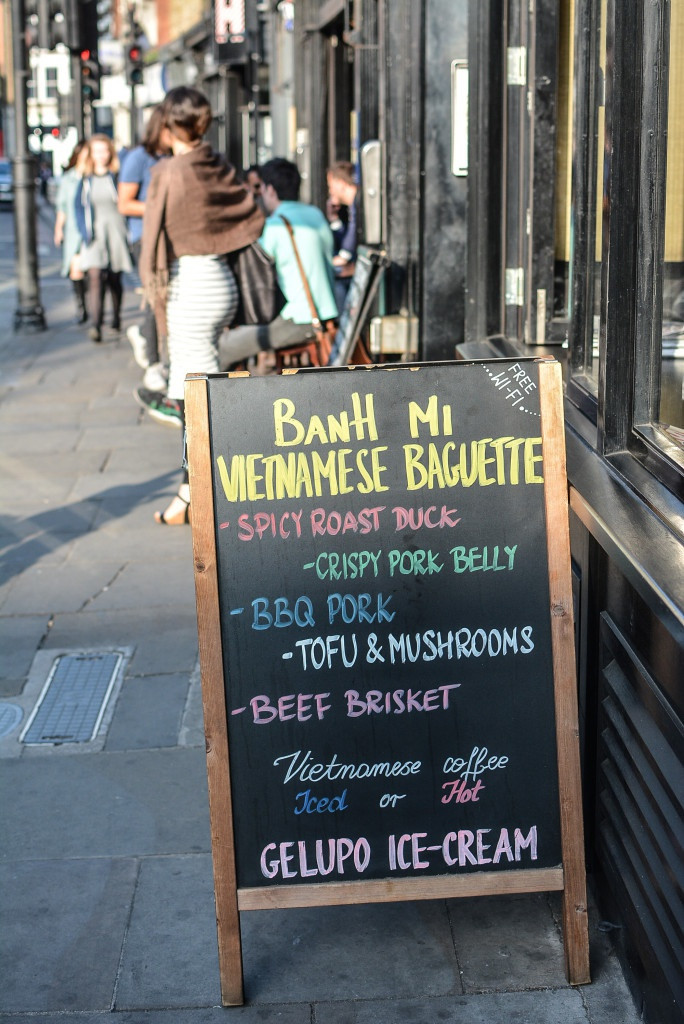 FREE
WI-FI
BanH Mi
VIETNAMESE BAGUETTE
- SPICY ROAST DUCK
- CRISPY PORK BELLY
- BBQ PORK
- TOFU & MUSHROOMS
- BEEF BRISKET
Vietnamese coffee
Iced or Hot
GELUPO ICE-CREAM
H